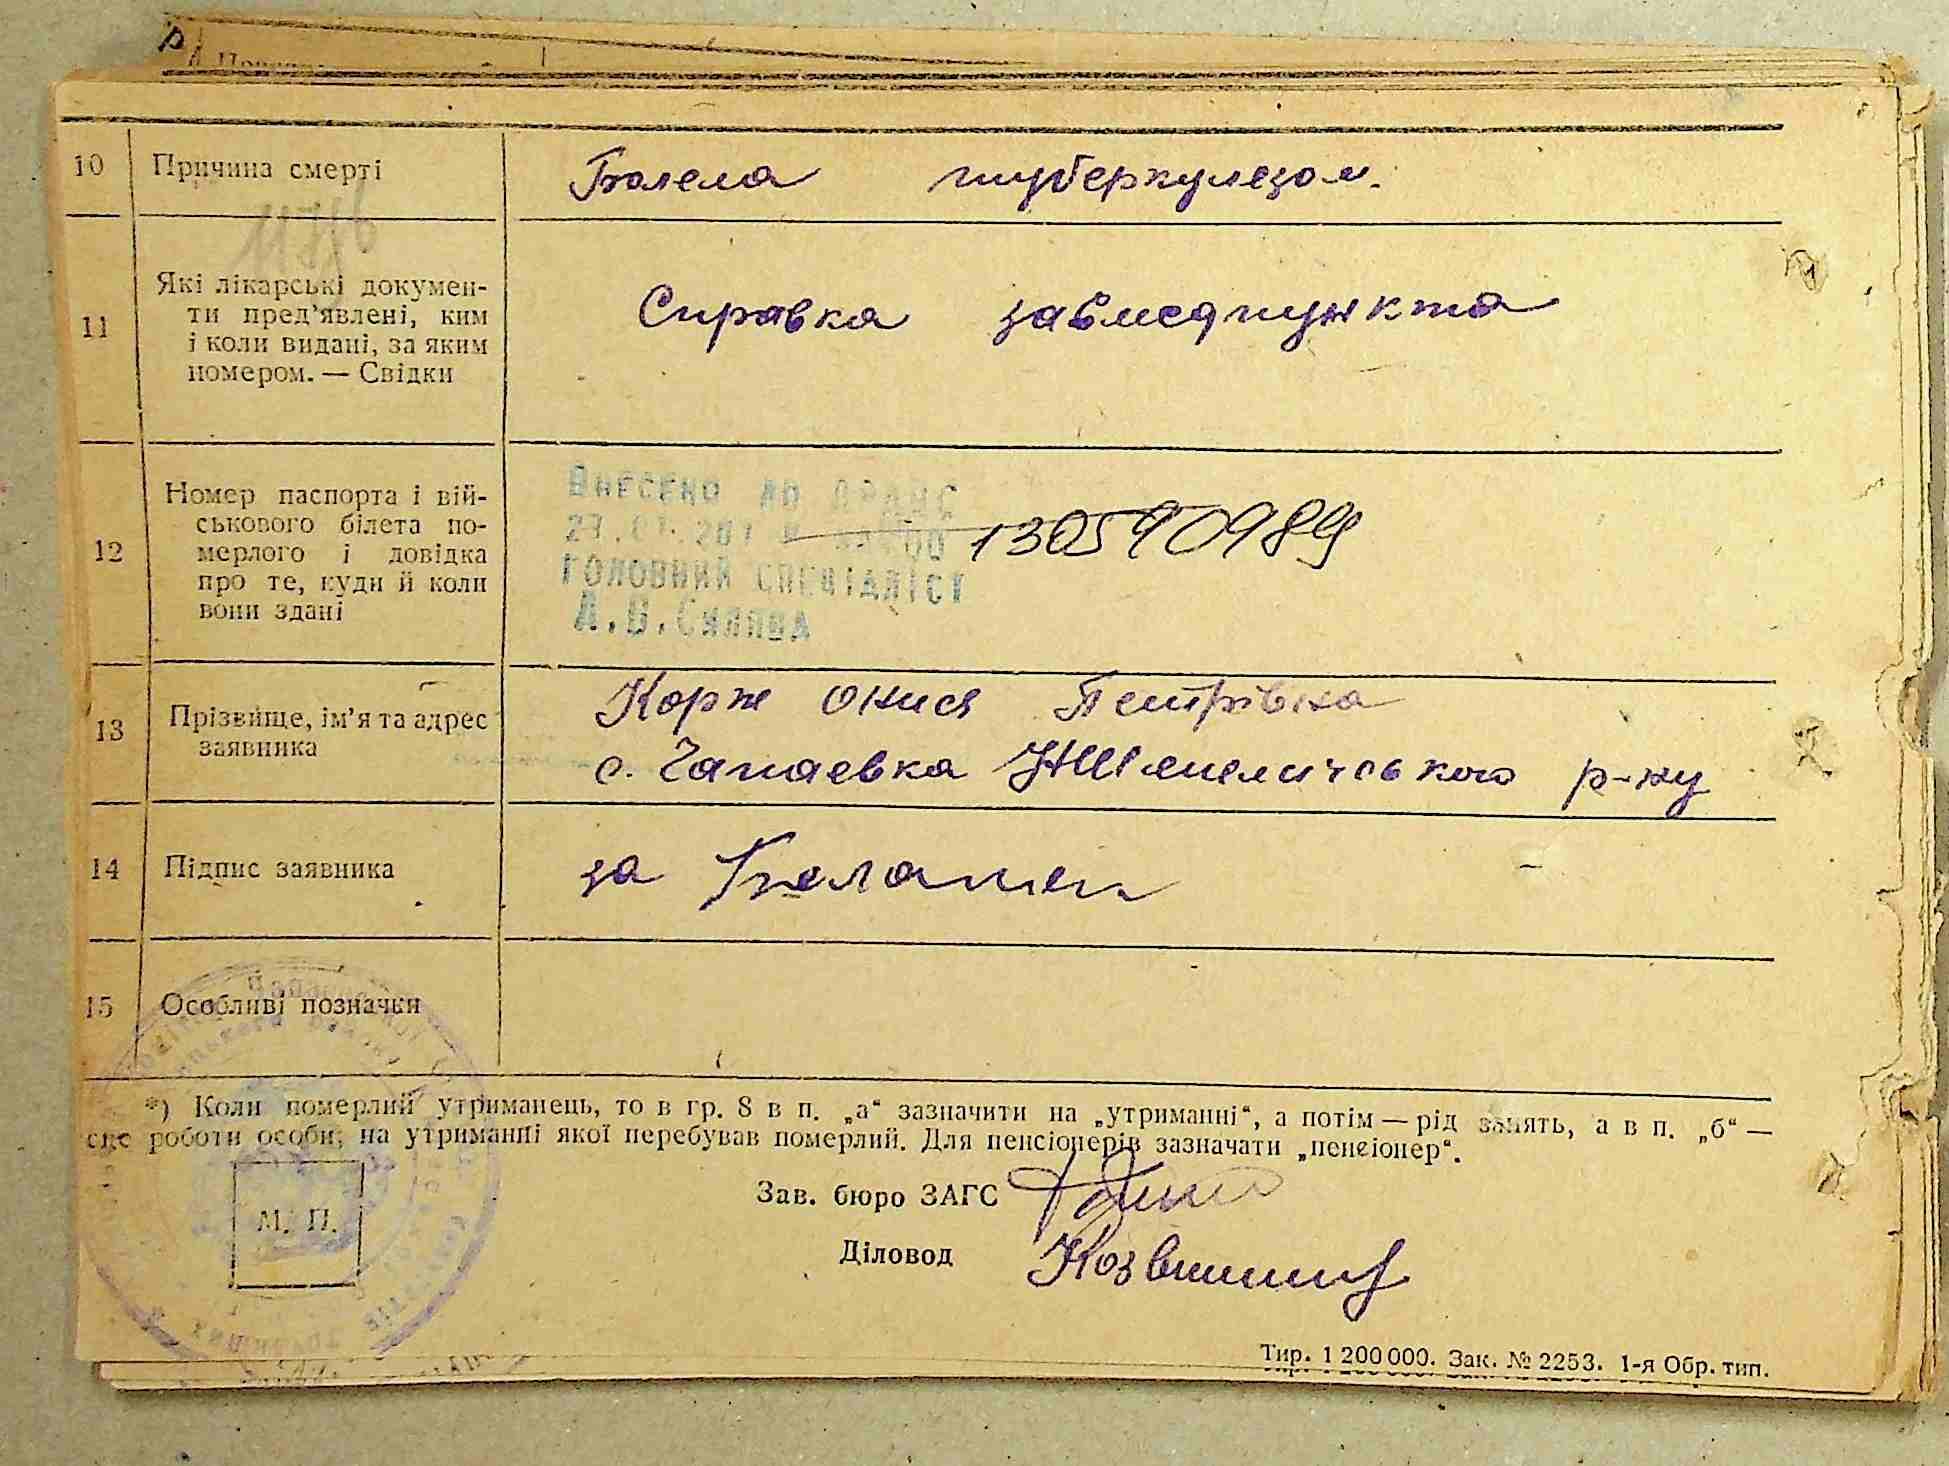 10 Причина смерті Болела туберкулезом.
11 Які лікарські докумен-
ти пред’явлені, ким
і коли видані, за яким
номером. — Свідки
Справка завмедпункта
12 Номер паспорта і вій-
ськового білета по-
мерлого і довідка
про те, куди й коли
вони здані
Внесено до ДРАЦС
130590989
Головний спеціаліст
13 Прізвище, ім’я та адрес
заявника
Корж Онися Петрівна
с. Чапаевка р-ну
14 Підпис заявника за
15 Особливі позначки
*) Коли померлий утриманець, то в гр. 8 в п. „а“ зазначити на „утриманні“, а потім — рід занять, а в п. „б“ —
сце роботи особи, на утриманні якої перебував померлий. Для пенсіонерів зазначати „пенсіонер“.
Зав. бюро ЗАГС
М. П.
Діловод
Тир. 1 200 000. Зак. № 2253. 1-я Обр. тип.